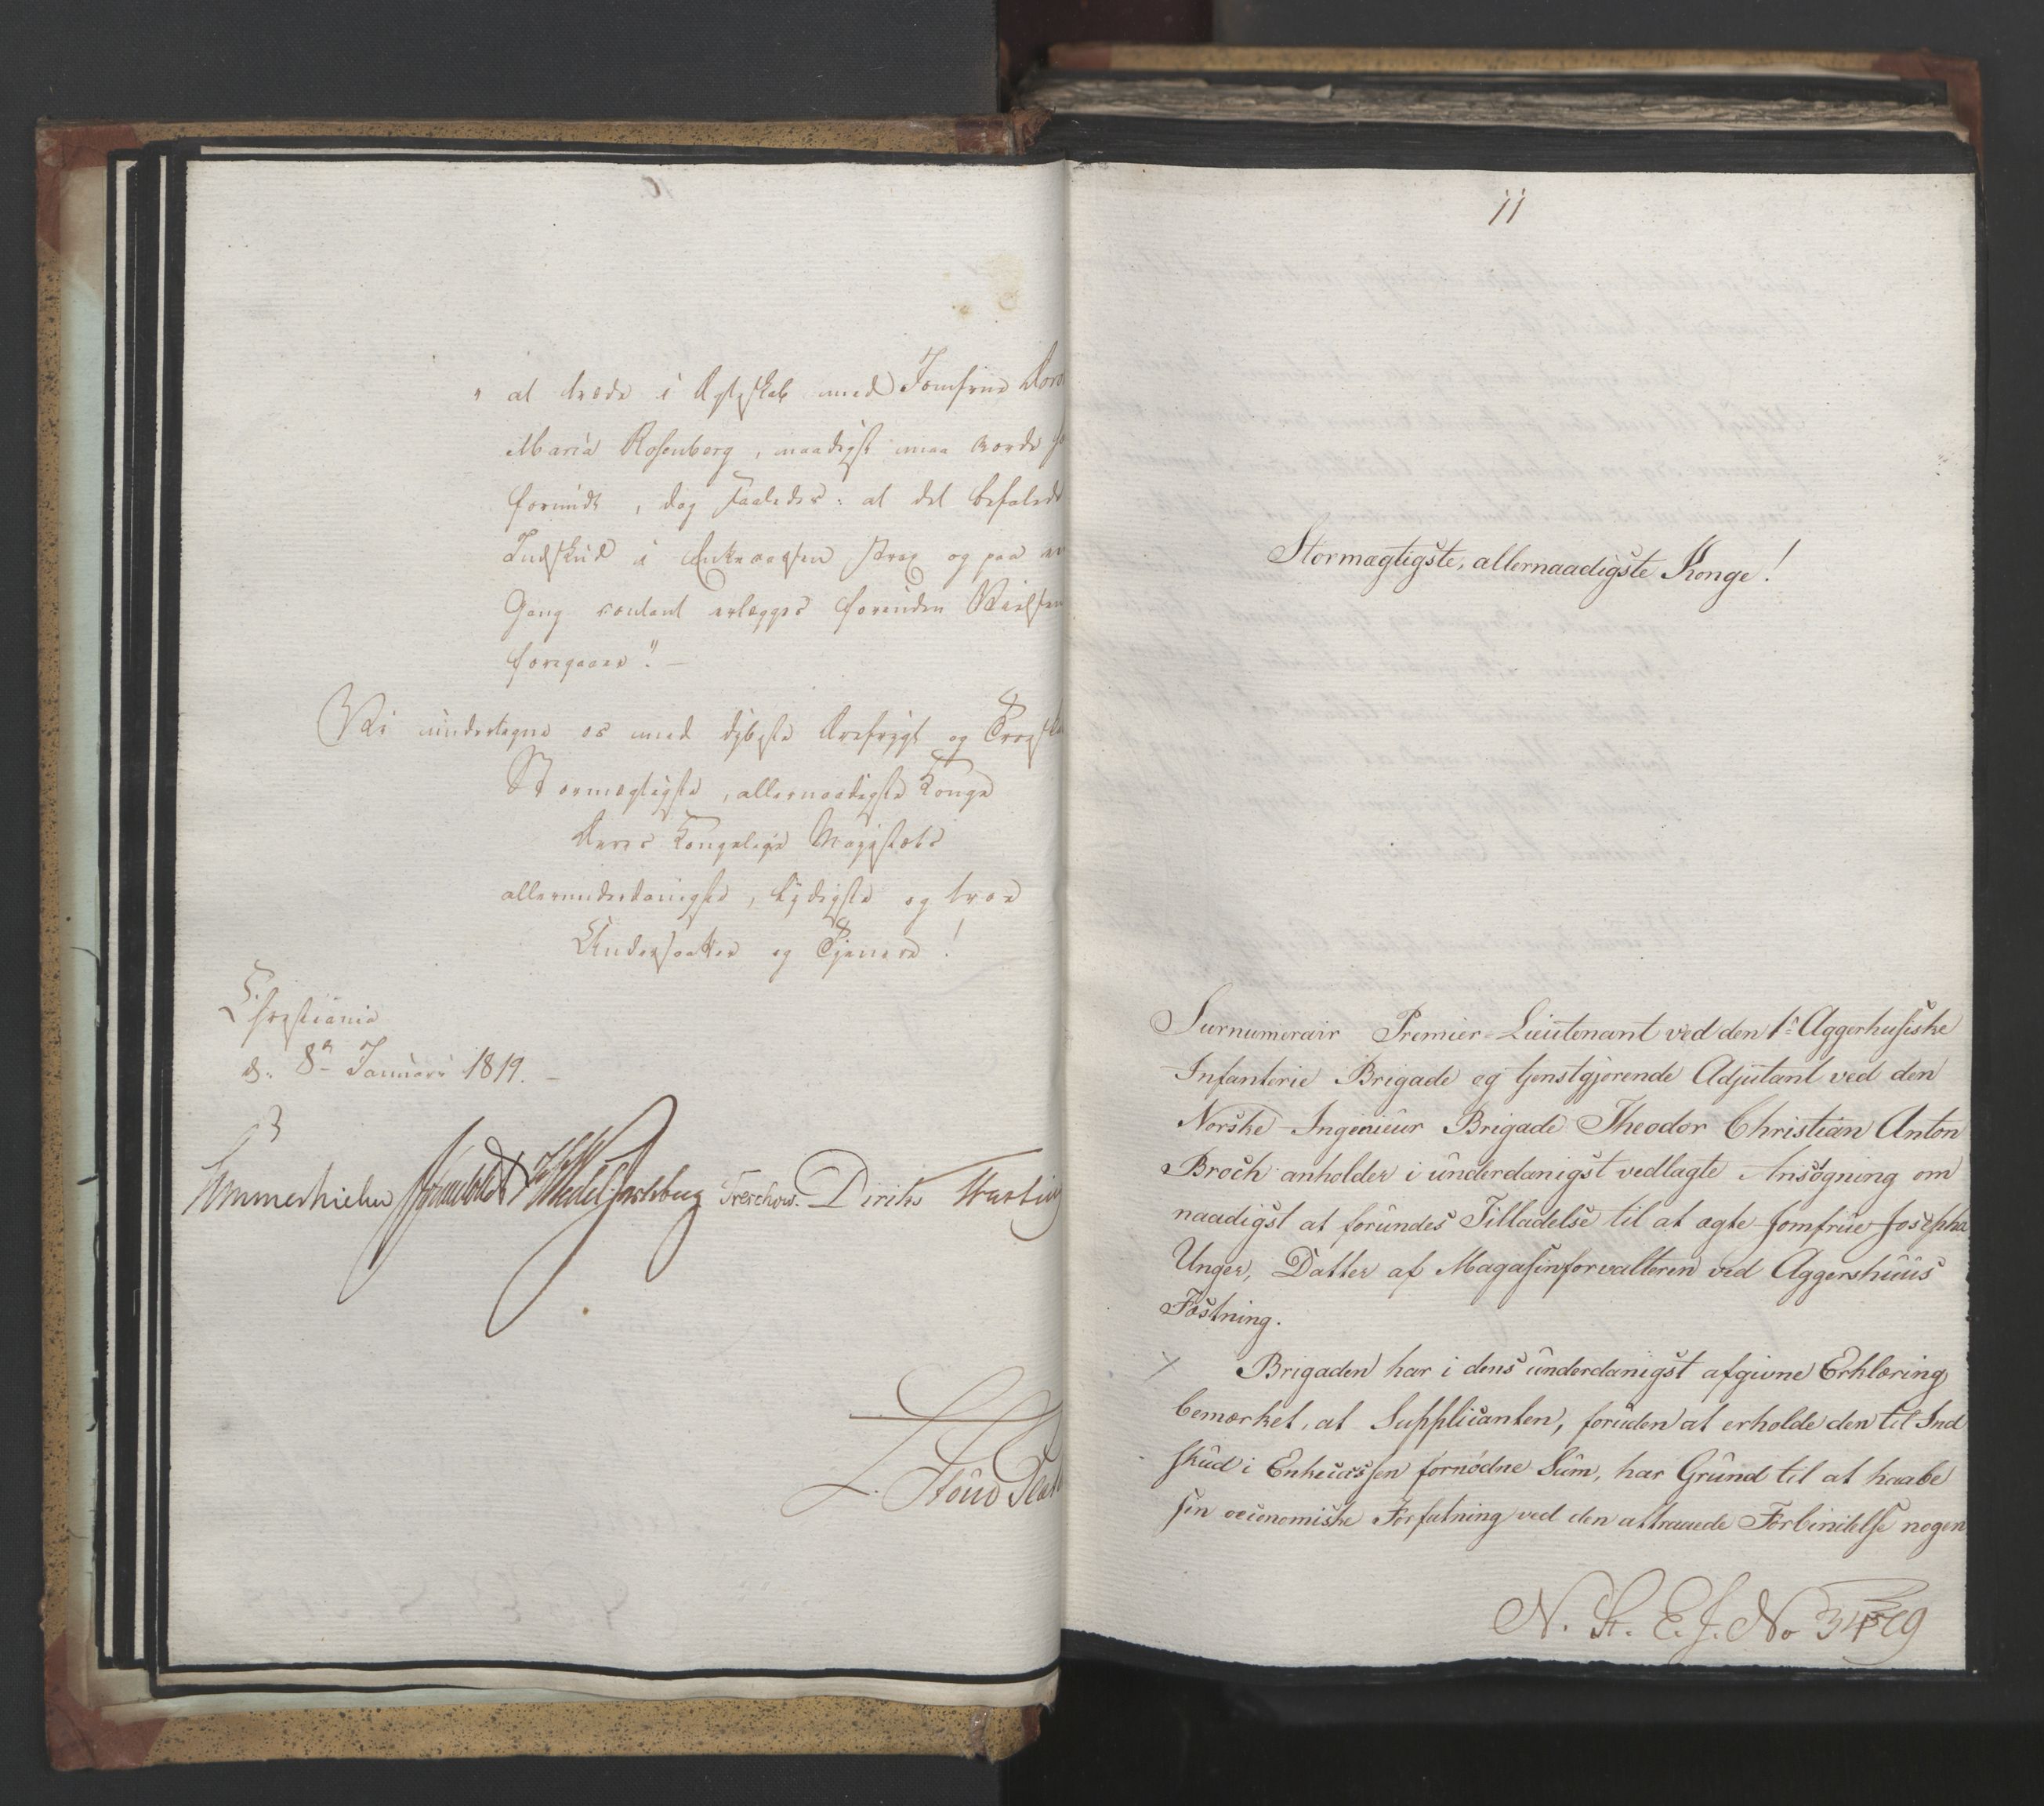 " at træde i Ægteskab med Jomfrue
Maria Rosenberg, naadigst maa vorde
forundt, dog saaledes: at det befalede
Indskud i Enkecassen strax og paa
Gang contant erlægges forinden Vielsen
foregaaer". —
Vi undertegne os med dybeste Ærefrygt og
Stormægtigste, allernaadigste Konge
Deres Kongelige Majestæts
allerunderdanigste, lydigste og troe
Undersaatter og Tjenere!
Christiania
d. 8de Januari 1819. —
Sommerhielm Wedel Jarlsberg Treschow. Diriks
11
Stormægtigste, allernaadigste Konge!
Surnumerair Premier-Lieutenant ved den 1ste Aggerhusiske
Infanterie Brigade og tjenstgjørende Adjutant ved den
Norske Ingenieur Brigade Theodor Christian Anton
Broch anholder i underdanigst vedlagte Ansøgning om
naadigst at forundes Tilladelse til at ægte Jomfrue Josepha
Unger, Datter af Magasinforvalteren ved Aggershuus
Fæstning.
Brigaden har i dens underdanigst afgivne Erklæring
bemærket, at Supplicanten, foruden at erholde den til Ind
skud i Enkecassen fornødne Sum, har Grund til at haabe
sin oeconomiske Forfatning ved den attraaede Forbindelse nogen